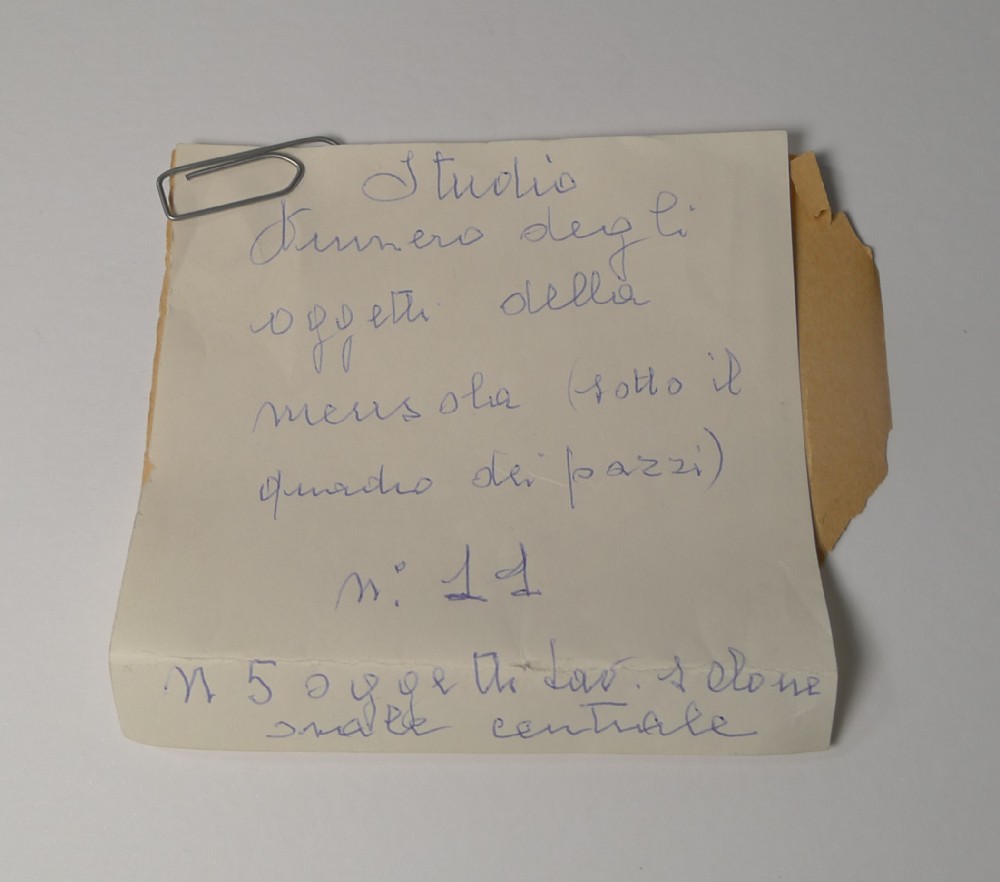 Studio
Numero degli
oggetti della
mensola (sotto il
quadro dei pazzi)
n: 11
N 5 oggetti tav. salone
ovale centrale